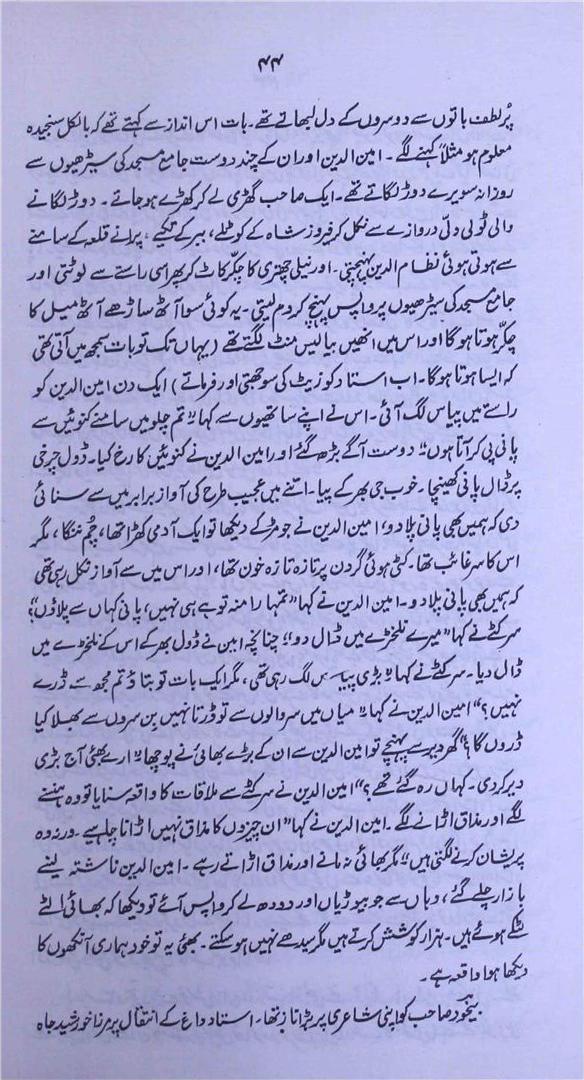 ۴۴
پُرلطف باتوں سے دوسروں کے دل لبھاتے تھے۔ بات اس انداز سے کہتے تھے کہ بالکل سنجیدہ
معلوم ہو مثلاً کہنے لگے۔ امین الدین اور ان کے چند دوست جامع مسجد کی سیڑھیوں سے
روزانہ سویرے دوڑ لگاتے تھے۔ ایک صاحب گھڑی لے کر کھڑے ہو جاتے۔ دوڑ لگانے
والی ٹولی دلّی دروازے سے نکل کر فیروز شاہ کے کوٹلے، ببر کے تکیے، پرانے قلعہ کے سامنے
سے ہوتی ہوئی نظام الدین پہنچتی۔ اور نیلی چھتری کا چکّر کاٹ کر پھر اسی راستے سے لوٹتی اور
جامع مسجد کی سیڑھیوں پر واپس پہنچ کر دم لیتی۔ یہ کوئی سوا آٹھ ساڑھے آٹھ میل کا
چکّر ہوتا ہوگا اور اس میں انھیں بیالیس منٹ لگتے تھے (یہاں تک تو بات سمجھ میں آتی تھی
کہ ایسا ہوتا ہوگا۔ اب استاد کو زیٹ کی سوجھتی اور فرماتے) ایک دن امین الدین کو
راستے میں پیاس لگ آئی۔ اس نے اپنے ساتھیوں سے کہا "تم چلو میں سامنے کنوئیں سے
پانی پی کر آتا ہوں" دوست آگے بڑھ گئے اور امین الدین نے کنوئیں کا رخ کیا۔ ڈول چرخی
پر ڈال پانی کھینچا۔ خوب جی بھر کے پیا۔ اتنے میں عجیب طرح کی آواز برابر میں سے سنائی
دی کہ ہمیں بھی پانی پلا دو، امین الدین نے جو مڑ کے دیکھا تو ایک آدمی کھڑا تھا، چُم ننگا، مگر
اس کا سر غائب تھا۔ کٹی ہوئی گردن پر تازہ تازہ خون تھا، اور اس میں سے آواز نکل رہی تھی
کہ ہمیں بھی پانی پلا دو۔ امین الدین نے کہا "تمہارا منہ تو ہے ہی نہیں، پانی کہاں سے پلاؤں؟"
سر کٹے نے کہا "میرے نلخڑے میں ڈال دو"؛ چنانچہ امین نے ڈول بھر کے اس کے نلخڑے میں
ڈال دیا۔ سر کٹے نے کہا "بڑی پیاس لگ رہی تھی، مگر ایک بات تو بتاؤ تم مجھ سے ڈرے
نہیں؟" امین الدین نے کہا "میاں میں سروالوں سے تو ڈرتا نہیں بن سروں سے بھلا کیا
ڈروں گا؟" گھر دیر سے پہنچے تو امین الدین سے ان کے بڑے بھائی نے پوچھا "ارے بھئی آج بڑی
دیر کردی۔ کہاں رہ گئے تھے؟" امین الدین نے سر کٹے سے ملاقات کا واقعہ سنایا تو وہ ہنسنے
لگے اور مذاق اڑانے لگے۔ امین الدین نے کہا "ان چیزوں کا مذاق نہیں اڑانا چاہیے۔ ورنہ وہ
پریشان کرنے لگتی ہیں" مگر بھائی نہ مانے اور مذاق اڑاتے رہے۔ امین الدین ناشتہ لینے
بازار چلے گئے، وہاں سے جو بیوڑیاں اور دودھ لے کر واپس آئے تو دیکھا کہ بھائی الٹے
ٹنگے ہوئے ہیں۔ ہزار کوشش کرتے ہیں مگر سیدھے نہیں ہو سکتے۔ بھئی یہ تو خود ہماری آنکھوں کا
دیکھا ہوا واقعہ ہے۔
بیخود صاحب کو اپنی شاعری پر بڑا ناز تھا۔ استاد داغ کے انتقال پر مرزا خورشید جاہ